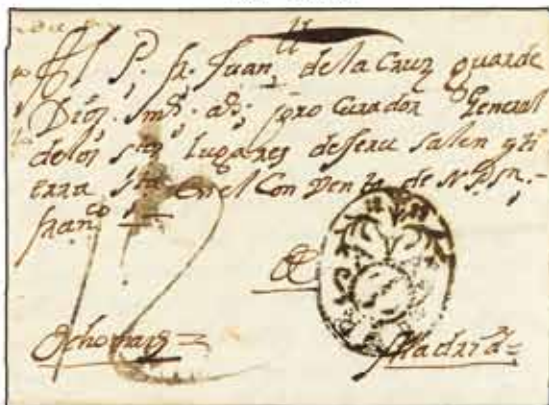 Al P. fr. Juan de la Cruz guarde
Dios. ms. as. pro Curador General
de los stos Lugares de Jeru salen y ti
erra sta en el Con Ven to de N. P. Sn.
franco
12
Madrid